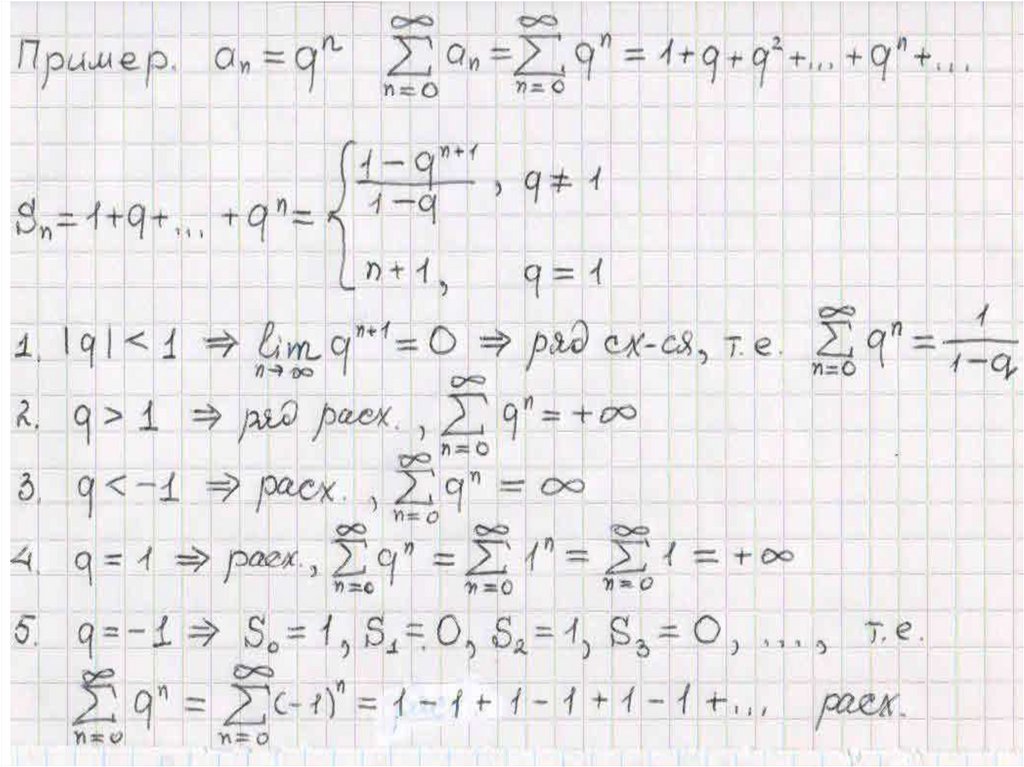 Пример. aₙ = qⁿ ∑_{n=0}^{∞} aₙ = ∑_{n=0}^{∞} qⁿ = 1 + q + q² + ... + qⁿ + ...
Sₙ = 1 + q + ... + qⁿ = { (1 − qⁿ⁺¹)/(1 − q), q ≠ 1
n + 1, q = 1
1. |q| < 1 ⇒ lim_{n→∞} qⁿ⁺¹ = 0 ⇒ ряд сх-ся, т.е. ∑_{n=0}^{∞} qⁿ = 1/(1−q)
2. q > 1 ⇒ ряд расх., ∑_{n=0}^{∞} qⁿ = +∞
3. q < −1 ⇒ расх., ∑_{n=0}^{∞} qⁿ = ∞
4. q = 1 ⇒ расх., ∑_{n=0}^{∞} qⁿ = ∑_{n=0}^{∞} 1ⁿ = ∑_{n=0}^{∞} 1 = +∞
5. q = −1 ⇒ S₀ = 1, S₁ = 0, S₂ = 1, S₃ = 0, ..., т.е.
∑_{n=0}^{∞} qⁿ = ∑_{n=0}^{∞} (−1)ⁿ = 1 − 1 + 1 − 1 + 1 − 1 + ... расх.